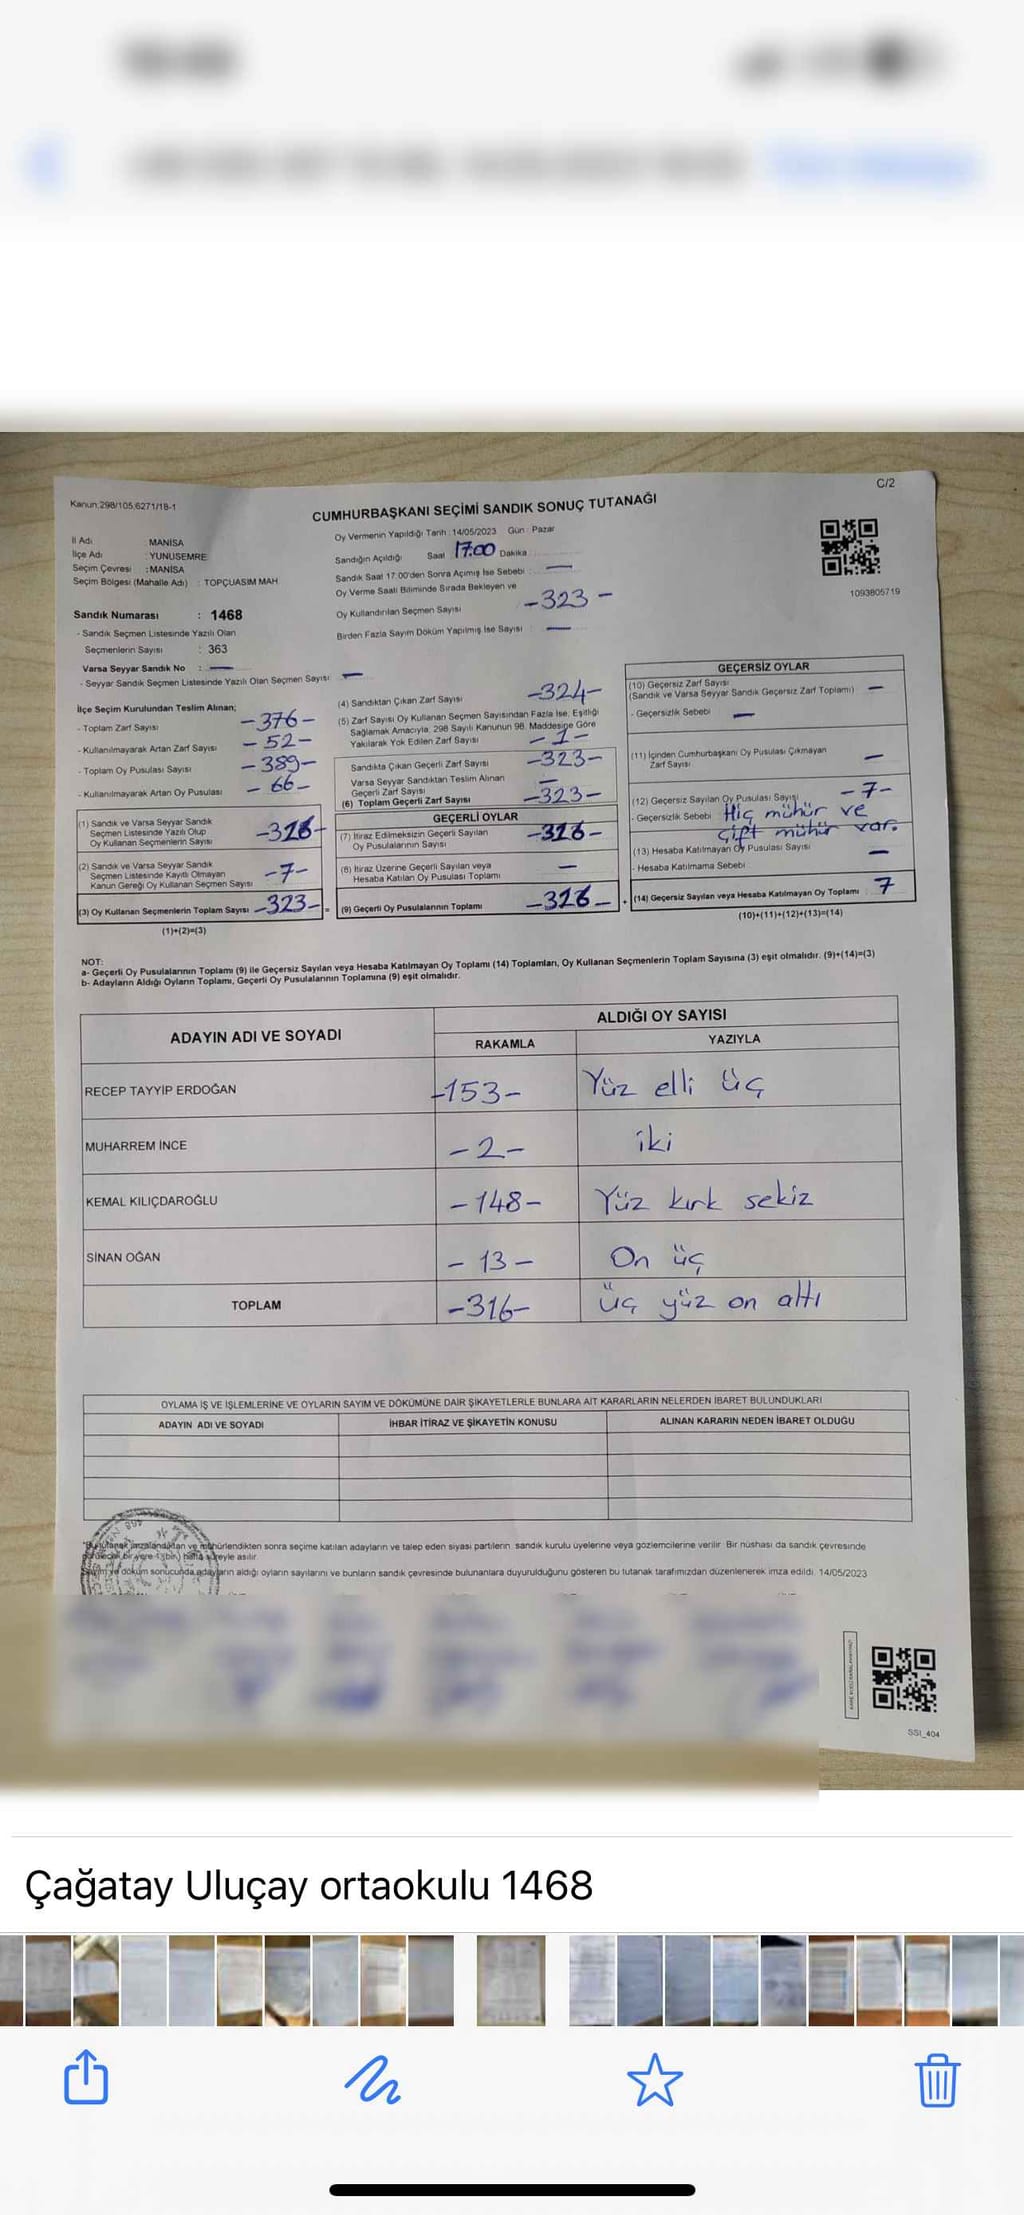 Kanun:298/105,6271/18-1
C/2
CUMHURBAŞKANI SEÇİMİ SANDIK SONUÇ TUTANAĞI
İl Adı : MANİSA
İlçe Adı : YUNUSEMRE
Seçim Çevresi : MANİSA
Seçim Bölgesi (Mahalle Adı) : TOPÇUASIM MAH
Sandık Numarası : 1468
- Sandık Seçmen Listesinde Yazılı Olan
Seçmenlerin Sayısı : 363
Varsa Seyyar Sandık No : —
- Seyyar Sandık Seçmen Listesinde Yazılı Olan Seçmen Sayısı : —
Oy Vermenin Yapıldığı Tarih : 14/05/2023 Gün : Pazar
Sandığın Açıldığı Saat 17:00 Dakika
Sandık Saat 17:00'den Sonra Açımış İse Sebebi : —
Oy Verme Saati Bitiminde Sırada Bekleyen ve
Oy Kullandırılan Seçmen Sayısı -323-
Birden Fazla Sayım Döküm Yapılmış İse Sayısı : —
1093805719
İlçe Seçim Kurulundan Teslim Alınan;
- Toplam Zarf Sayısı -376-
- Kullanılmayarak Artan Zarf Sayısı -52-
- Toplam Oy Pusulası Sayısı -389-
- Kullanılmayarak Artan Oy Pusulası -66-
(1) Sandık ve Varsa Seyyar Sandık
Seçmen Listesinde Yazılı Olup
Oy Kullanan Seçmenlerin Sayısı -316-
(2) Sandık ve Varsa Seyyar Sandık
Seçmen Listesinde Kayıtlı Olmayan
Kanun Gereği Oy Kullanan Seçmen Sayısı -7-
(3) Oy Kullanan Seçmenlerin Toplam Sayısı -323- =
(1)+(2)=(3)
(4) Sandıktan Çıkan Zarf Sayısı -324-
(5) Zarf Sayısı Oy Kullanan Seçmen Sayısından Fazla İse, Eşitliği
Sağlamak Amacıyla, 298 Sayılı Kanunun 98. Maddesine Göre
Yakılarak Yok Edilen Zarf Sayısı -1-
Sandıkta Çıkan Geçerli Zarf Sayısı -323-
Varsa Seyyar Sandıktan Teslim Alınan
Geçerli Zarf Sayısı —
(6) Toplam Geçerli Zarf Sayısı -323-
GEÇERLİ OYLAR
(7) İtiraz Edilmeksizin Geçerli Sayılan
Oy Pusulalarının Sayısı -316-
(8) İtiraz Üzerine Geçerli Sayılan veya
Hesaba Katılan Oy Pusulası Toplamı —
(9) Geçerli Oy Pusulalarının Toplamı -316- +
GEÇERSİZ OYLAR
(10) Geçersiz Zarf Sayısı
(Sandık ve Varsa Seyyar Sandık Geçersiz Zarf Toplamı) —
- Geçersizlik Sebebi —
(11) İçinden Cumhurbaşkanı Oy Pusulası Çıkmayan
Zarf Sayısı —
(12) Geçersiz Sayılan Oy Pusulası Sayısı -7-
- Geçersizlik Sebebi Hiç mühür ve
çift mühür var.
(13) Hesaba Katılmayan Oy Pusulası Sayısı —
- Hesaba Katılmama Sebebi
(14) Geçersiz Sayılan veya Hesaba Katılmayan Oy Toplamı : 7
(10)+(11)+(12)+(13)=(14)
NOT:
a- Geçerli Oy Pusulalarının Toplamı (9) ile Geçersiz Sayılan veya Hesaba Katılmayan Oy Toplamı (14) Toplamları, Oy Kullanan Seçmenlerin Toplam Sayısına (3) eşit olmalıdır. (9)+(14)=(3)
b- Adayların Aldığı Oyların Toplamı, Geçerli Oy Pusulalarının Toplamına (9) eşit olmalıdır.
ADAYIN ADI VE SOYADI
ALDIĞI OY SAYISI
RAKAMLA YAZIYLA
RECEP TAYYİP ERDOĞAN -153- Yüz elli üç
MUHARREM İNCE -2- iki
KEMAL KILIÇDAROĞLU -148- Yüz kırk sekiz
SİNAN OĞAN -13- On üç
TOPLAM -316- üç yüz on altı
OYLAMA İŞ VE İŞLEMLERİNE VE OYLARIN SAYIM VE DÖKÜMÜNE DAİR ŞİKAYETLERLE BUNLARA AİT KARARLARIN NELERDEN İBARET BULUNDUKLARI
ADAYIN ADI VE SOYADI İHBAR İTİRAZ VE ŞİKAYETİN KONUSU ALINAN KARARIN NEDEN İBARET OLDUĞU
*Bu tutanak imzalandıktan ve mühürlendikten sonra seçime katılan adayların ve talep eden siyasi partilerin sandık kurulu üyelerine veya gözlemcilerine verilir. Bir nüshası da sandık çevresinde
görülecek bir yere 1 (bir) hafta süreyle asılır.
Sayım ve döküm sonucunda adayların aldığı oyların sayılarını ve bunların sandık çevresinde bulunanlara duyurulduğunu gösteren bu tutanak tarafımızdan düzenlenerek imza edildi. 14/05/2023
SSI_404
Çağatay Uluçay ortaokulu 1468